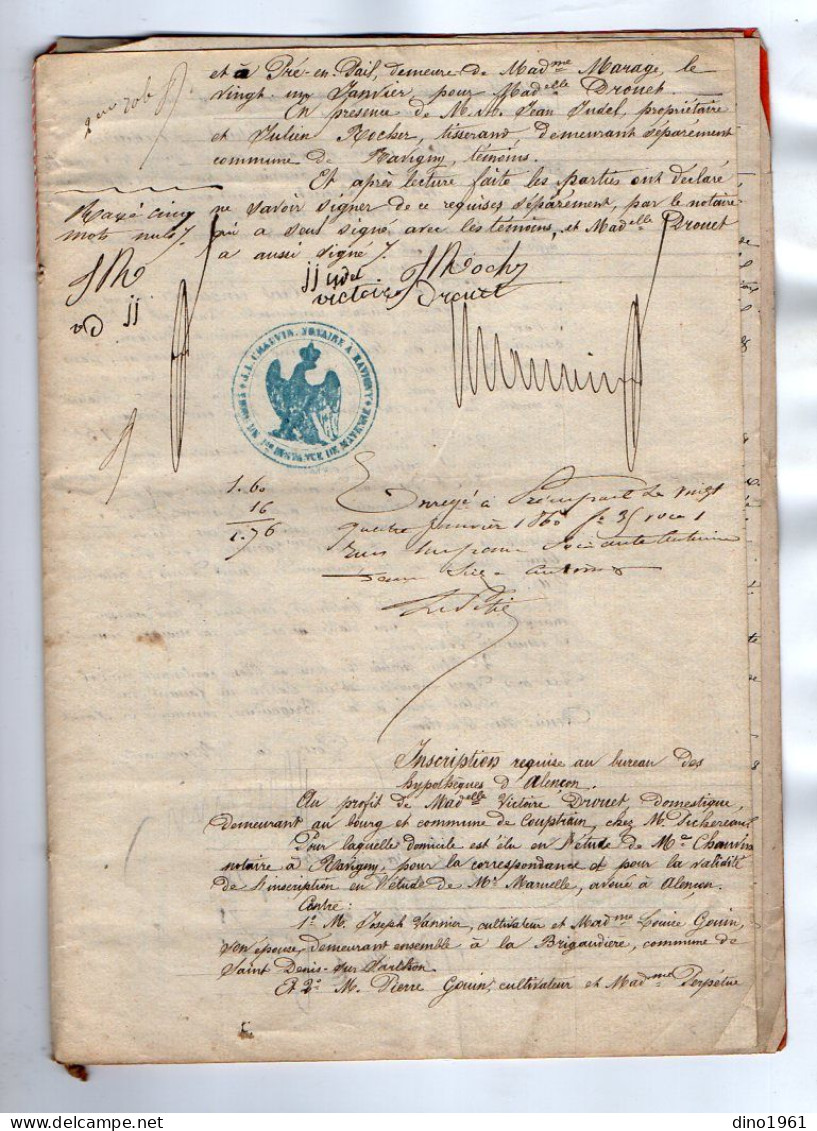 et à Pré-en-Pail, demeure de Mad^me Marage, le
vingt un Janvier, pour Mad^elle Drouet.
En présence de M.M. Jean Judel, propriétaire
et Julien Rocher, tisserand, demeurant séparément
commune de Ravigny, témoins.
Et après lecture faite les parties ont déclaré
ne savoir signer de ce requises séparément, par le notaire
qui a seul signé avec les témoins, et Mad^elle Drouet
a aussi signé /.
Rayé cinq
mots nuls /.
JR
jj
VD
jj udel
J Rocher
victoire Drouet
J.L. CHAUVIN, NOTAIRE A RAVIGNY
TRIB. DE 1re INSTANCE DE MAYENNE
1.60
16
1.76
Enregé à Préenpail le vingt
quatre janvier 1860 f° 35 v
Inscription requise au bureau des
hypothèques d'Alençon.
Au profit de Mad^elle Victoire Drouet, domestique,
demeurant au bourg et commune de Couptrain, chez M.
Pour laquelle domicile est élu en l'étude de M^e Chauvin
notaire à Ravigny, pour la correspondance et pour la validité
de l'inscription en l'étude de M^e Maruelle, avoué à Alençon.
Contre :
1° M. Joseph Vannier, cultivateur et Mad^me Louise Gouin,
son épouse, demeurant ensemble à la Brigaudière, commune de
Saint Denis-sur Sarthon
Et 2° M. Pierre Gouin, cultivateur et Mad^me Perpétue
dino1961